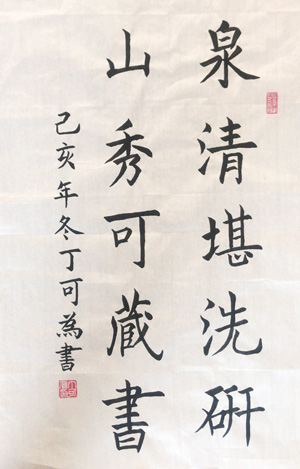 泉清堪洗研
山秀可蔵書
己亥年冬丁可為書